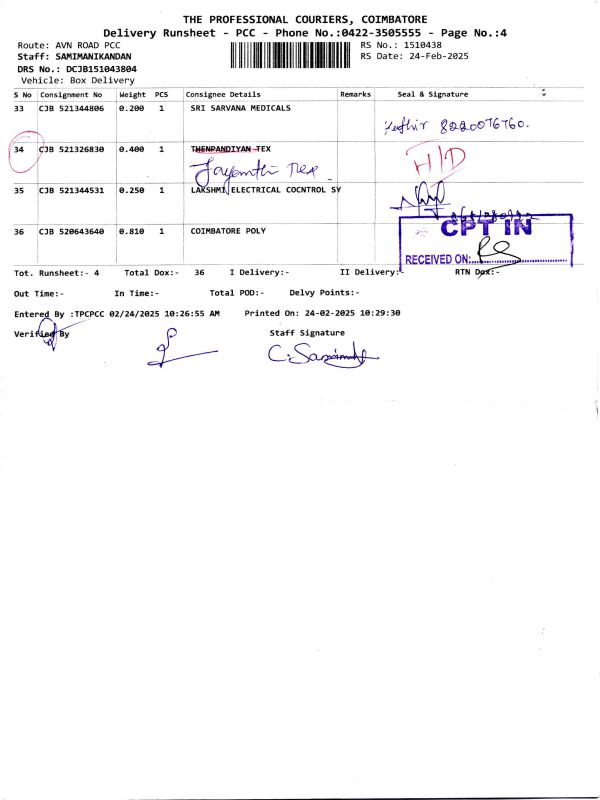 THE PROFESSIONAL COURIERS, COIMBATORE
Delivery Runsheet - PCC - Phone No.:0422-3505555 - Page No.:4
Route: AVN ROAD PCC RS No.: 1510438
Staff: SAMIMANIKANDAN RS Date: 24-Feb-2025
DRS No.: DCJB151043804
Vehicle: Box Delivery
S No Consignment No Weight PCS Consignee Details Remarks Seal & Signature
33 CJB 521344806 0.200 1 SRI SARVANA MEDICALS
8220076760.
34 CJB 521326830 0.400 1 THENPANDIYAN TEX H/D
Jayanthi Tex
35 CJB 521344531 0.250 1 LAKSHMI ELECTRICAL COCNTROL SY
36 CJB 520643640 0.810 1 COIMBATORE POLY CPT IN
RECEIVED ON:
Tot. Runsheet:- 4 Total Dox:- 36 I Delivery:- II Delivery:- RTN Dox:-
Out Time:- In Time:- Total POD:- Delvy Points:-
Entered By :TPCPCC 02/24/2025 10:26:55 AM Printed On: 24-02-2025 10:29:30
Verified By Staff Signature